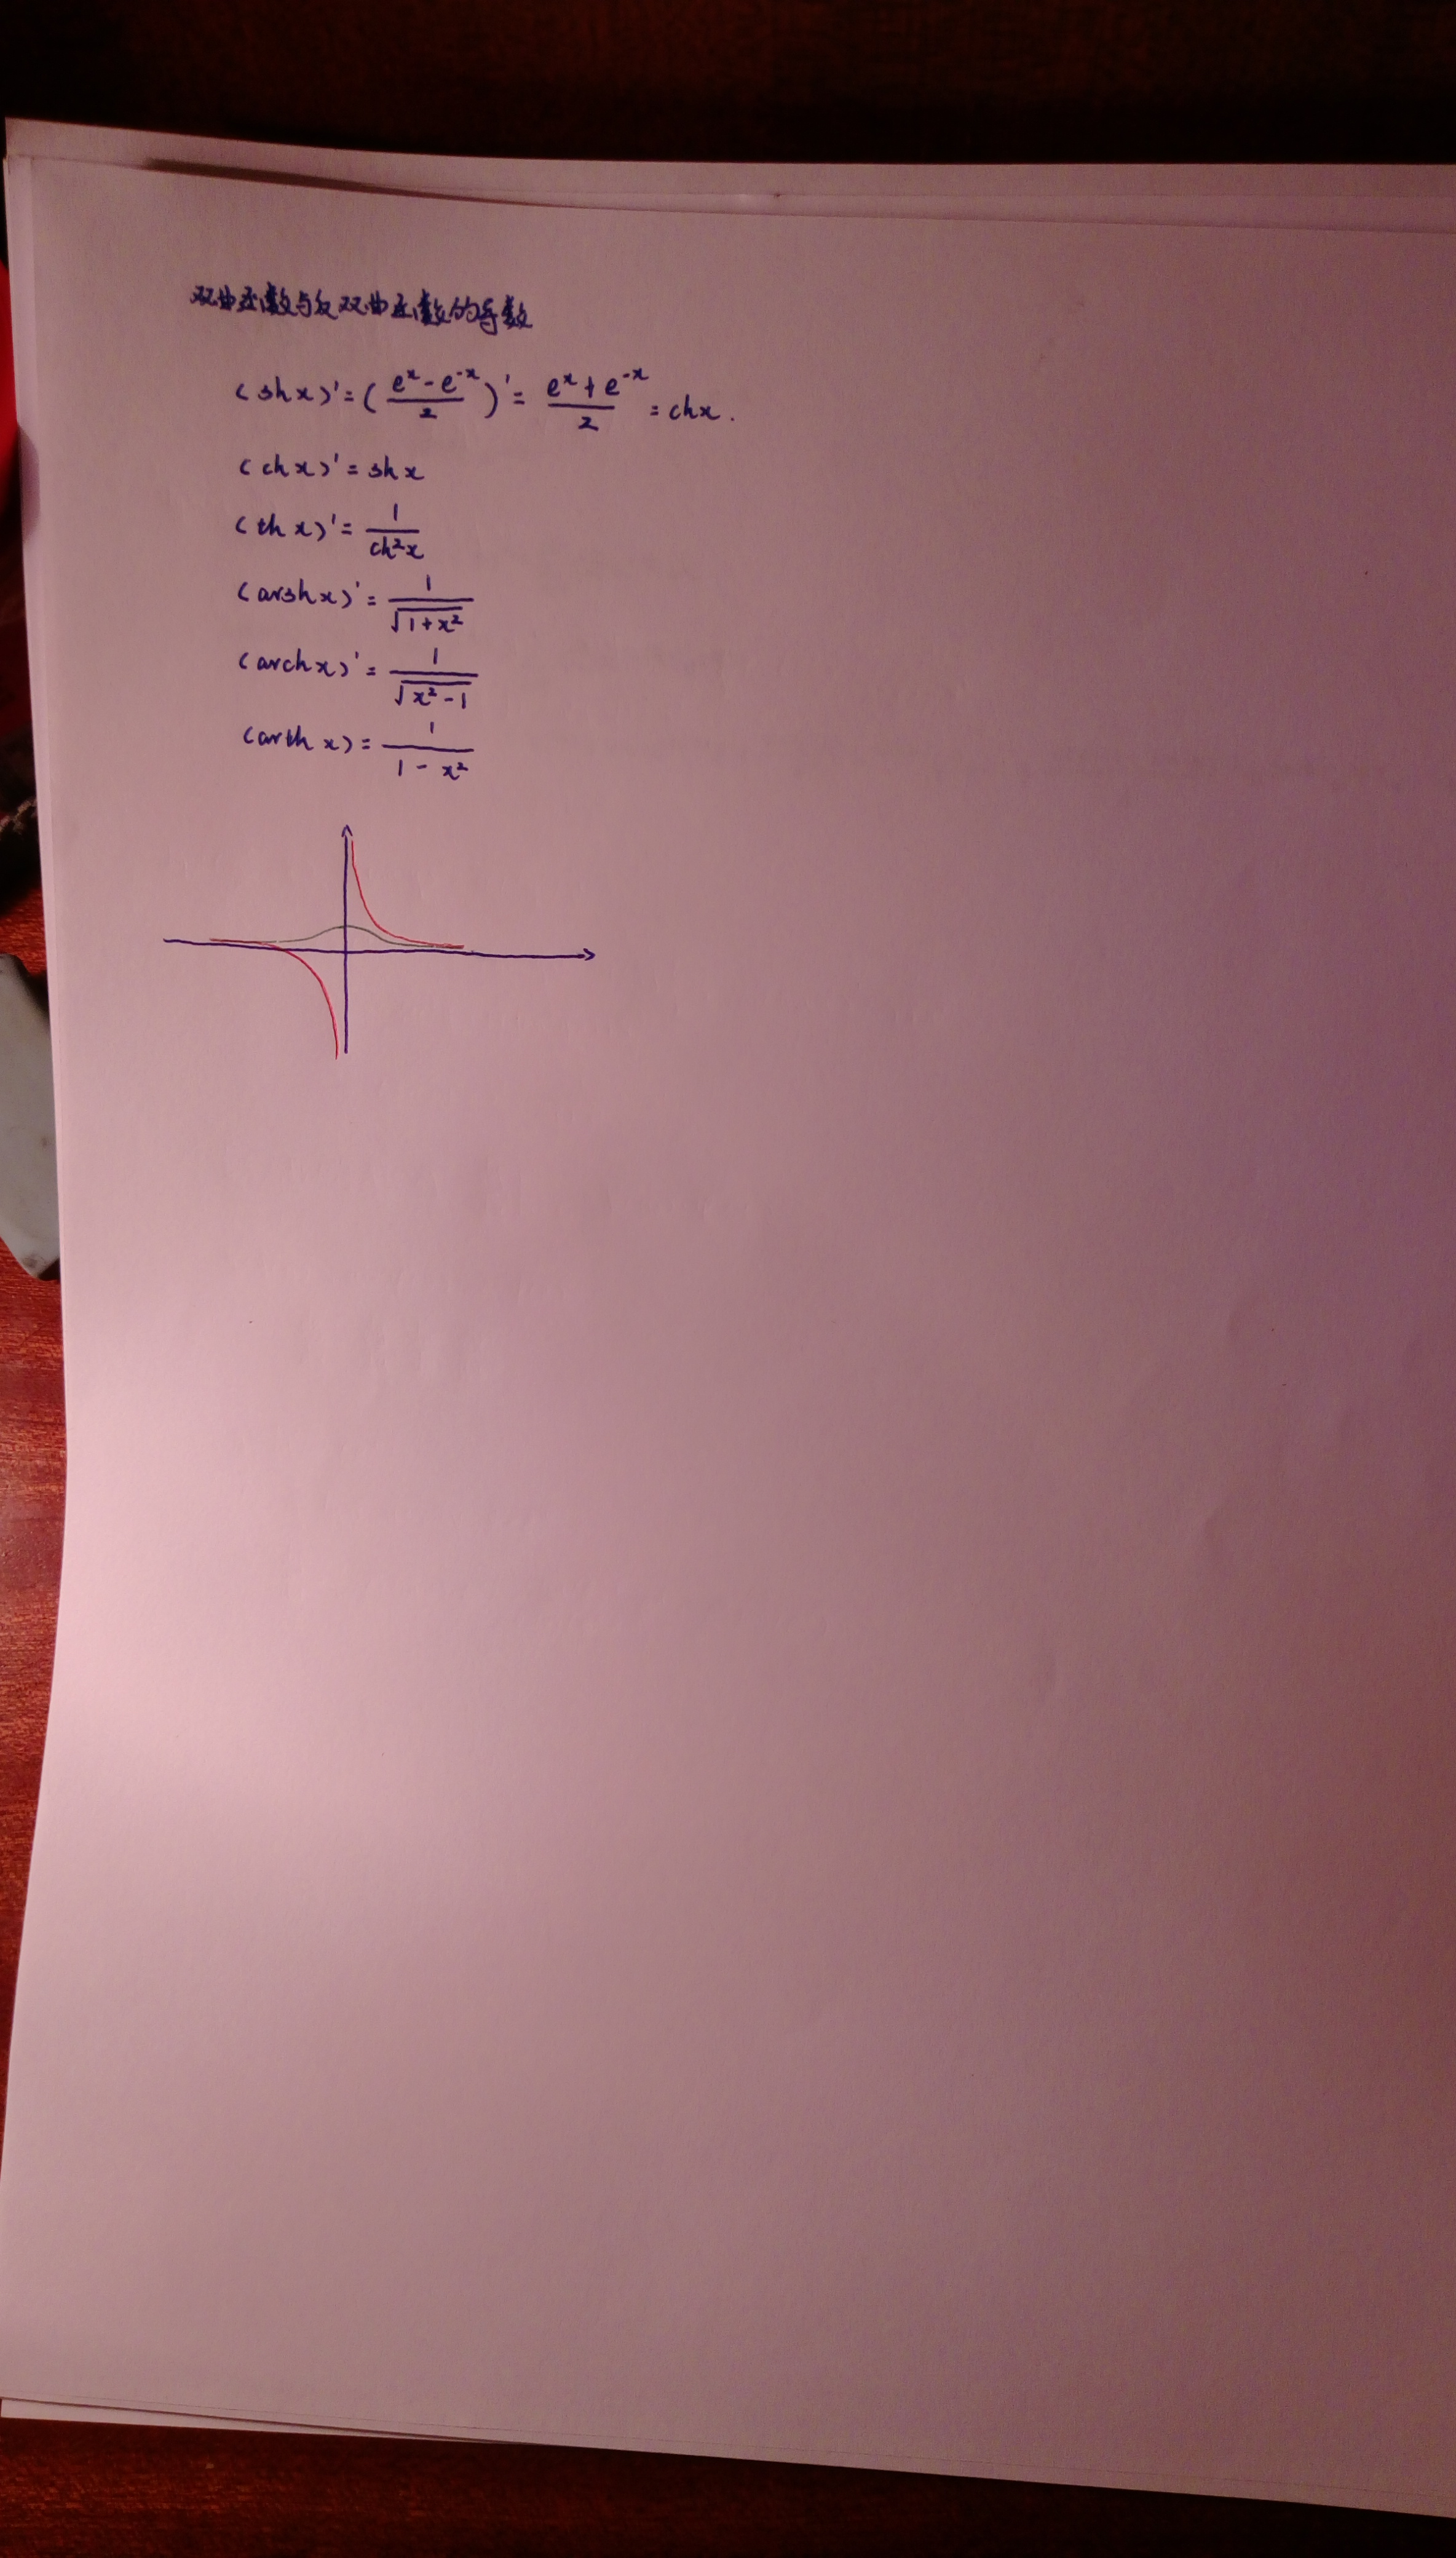 双曲函数与反双曲函数的导数
(shx)'=(\frac{e^x-e^{-x}}{2})'=\frac{e^x+e^{-x}}{2}=chx.
(chx)'=shx
(thx)'=\frac{1}{ch^2x}
(arshx)'=\frac{1}{\sqrt{1+x^2}}
(archx)'=\frac{1}{\sqrt{x^2-1}}
(arthx)=\frac{1}{1-x^2}